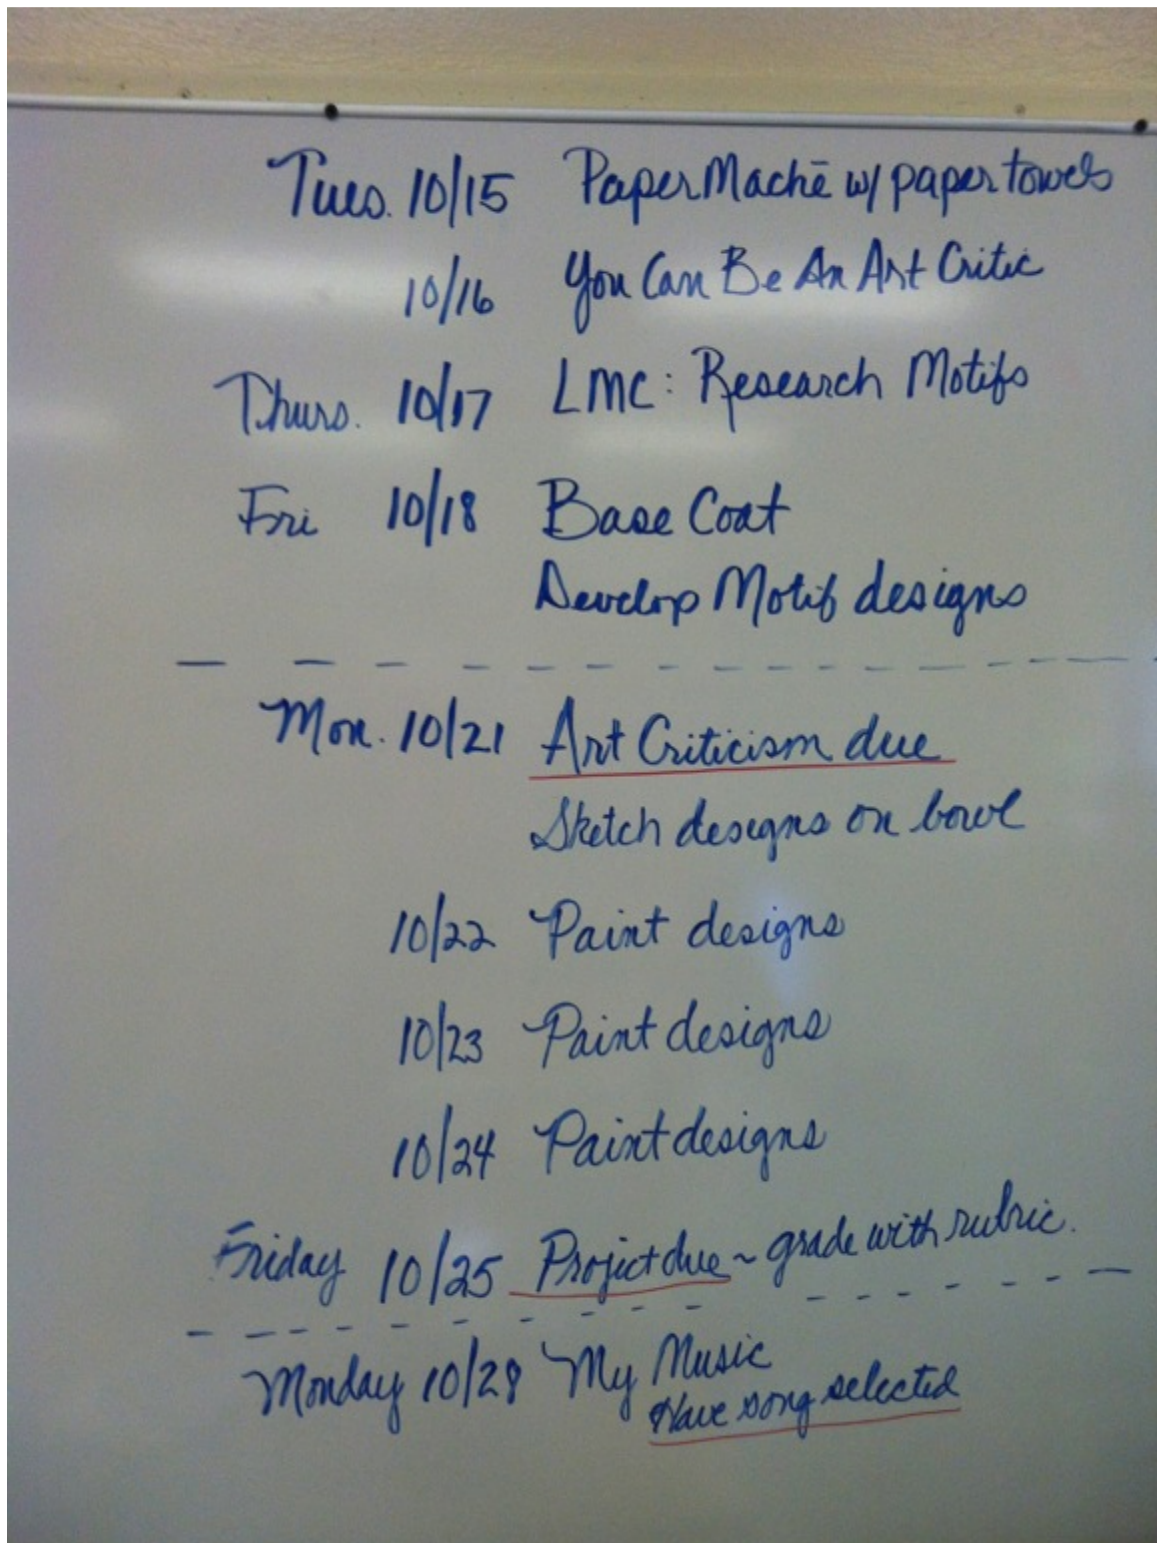 Tues. 10/15 Paper Machē w/ paper towels
10/16 You Can Be An Art Critic
Thurs. 10/17 LMC: Research Motifs
Fri 10/18 Base Coat
Develop Motif designs
Mon. 10/21 Art Criticism due
Sketch designs on bowl
10/22 Paint designs
10/23 Paint designs
10/24 Paint designs
Friday 10/25 Project due ~ grade with rubric.
Monday 10/28 My Music
Have song selected